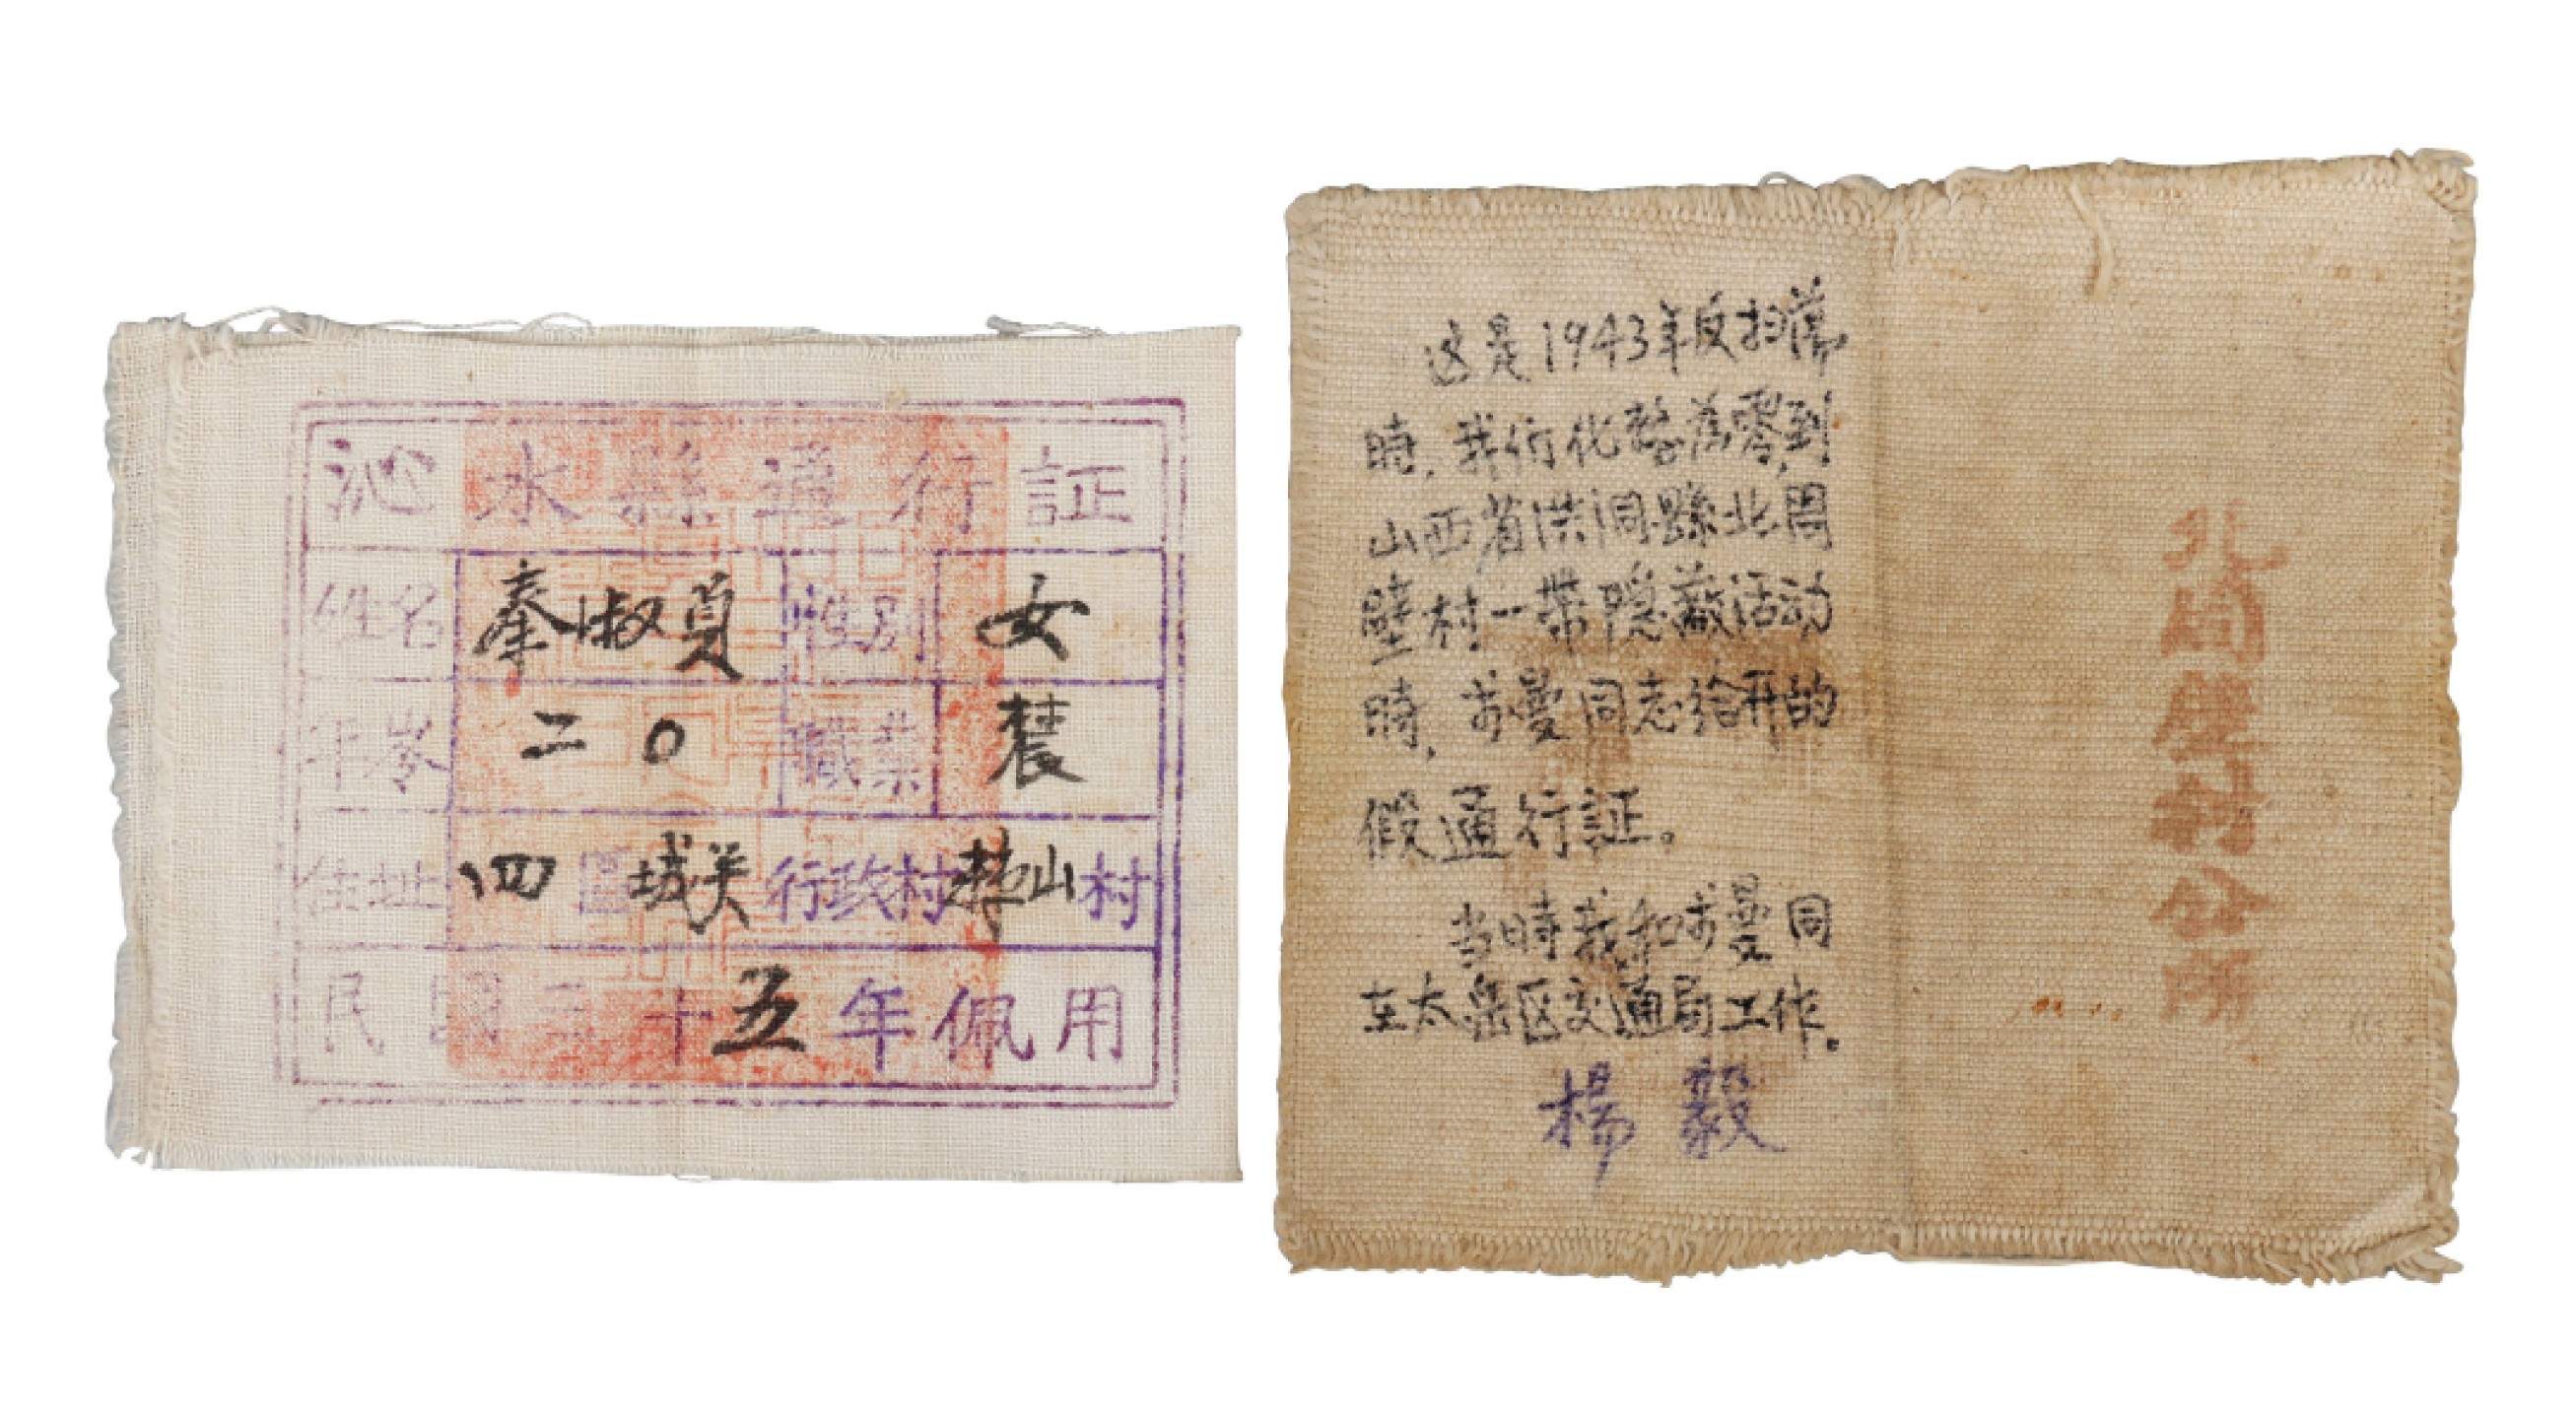 沁水縣通行証
姓名 秦淑貞 性别 女
年岺 二〇 職業 農
住址 四區 城关行政村 山村
民國三十五年佩用
这是1943年反扫荡
時,我们化整為零,到
山西省洪洞縣北周
壁村一带隐蔽活动
時,曼同志给开的
假通行証。
当時我和曼同
在太岳区交通局工作。
楊毅
北周壁村公所